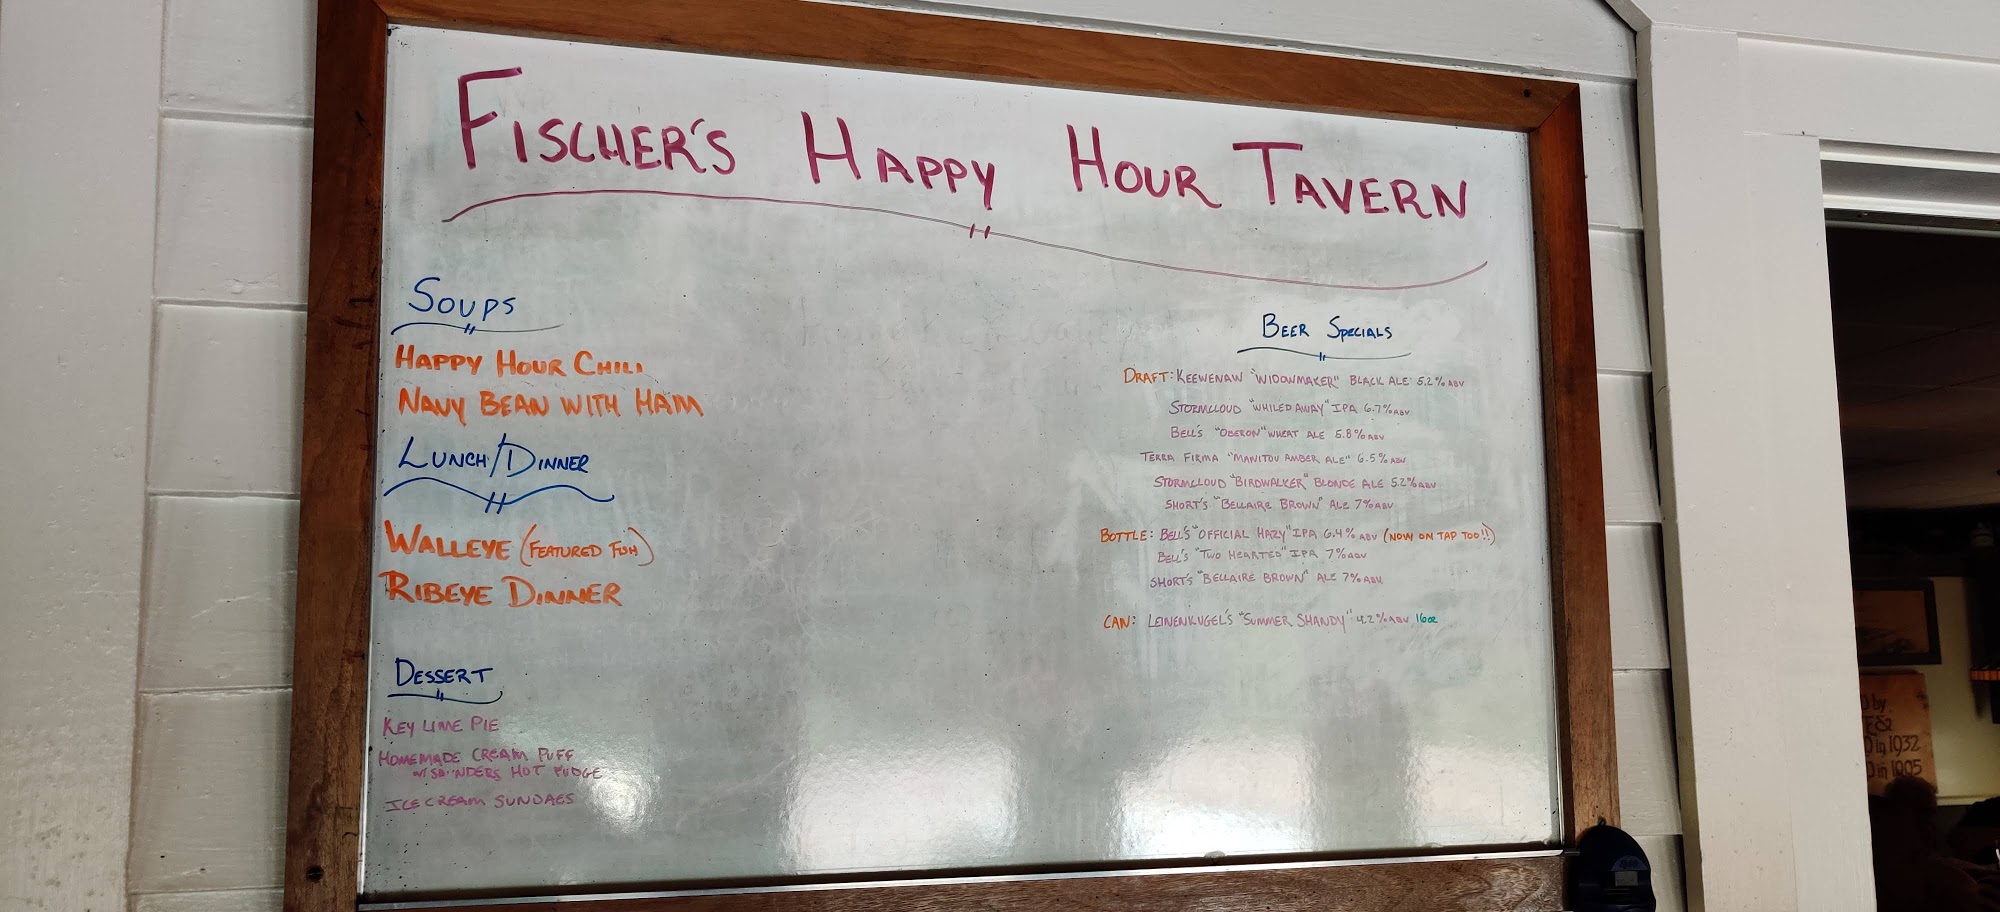 FISCHER'S HAPPY HOUR TAVERN
SOUPS
HAPPY HOUR CHILI
NAVY BEAN WITH HAM
LUNCH/DINNER
WALLEYE (FEATURED FISH)
RIBEYE DINNER
DESSERT
KEY LIME PIE
HOMEMADE CREAM PUFF
HOT FUDGE
ICE CREAM SUNDAES
BEER SPECIALS
DRAFT: KEEWENAW "WIDOWMAKER" BLACK ALE: 5.2% ABV
STORMCLOUD "WHILED AWAY" IPA 6.7% ABV
BELL'S "OBERON" WHEAT ALE 5.8% ABV
TERRA FIRMA "MANITOU AMBER ALE" 6.5% ABV
STORMCLOUD "BIRDWALKER" BLONDE ALE 5.2% ABV
SHORT'S "BELLAIRE BROWN" ALE 7% ABV
BOTTLE: BELL'S "OFFICIAL HAZY" IPA 6.4% ABV (NOW ON TAP TOO!!)
BELL'S "TWO HEARTED" IPA 7% ABV
SHORT'S "BELLAIRE BROWN" ALE 7% ABV
CAN: LEINENKUGEL'S "SUMMER SHANDY" 4.2% ABV 16oz
by
&
in 1932
in 1905